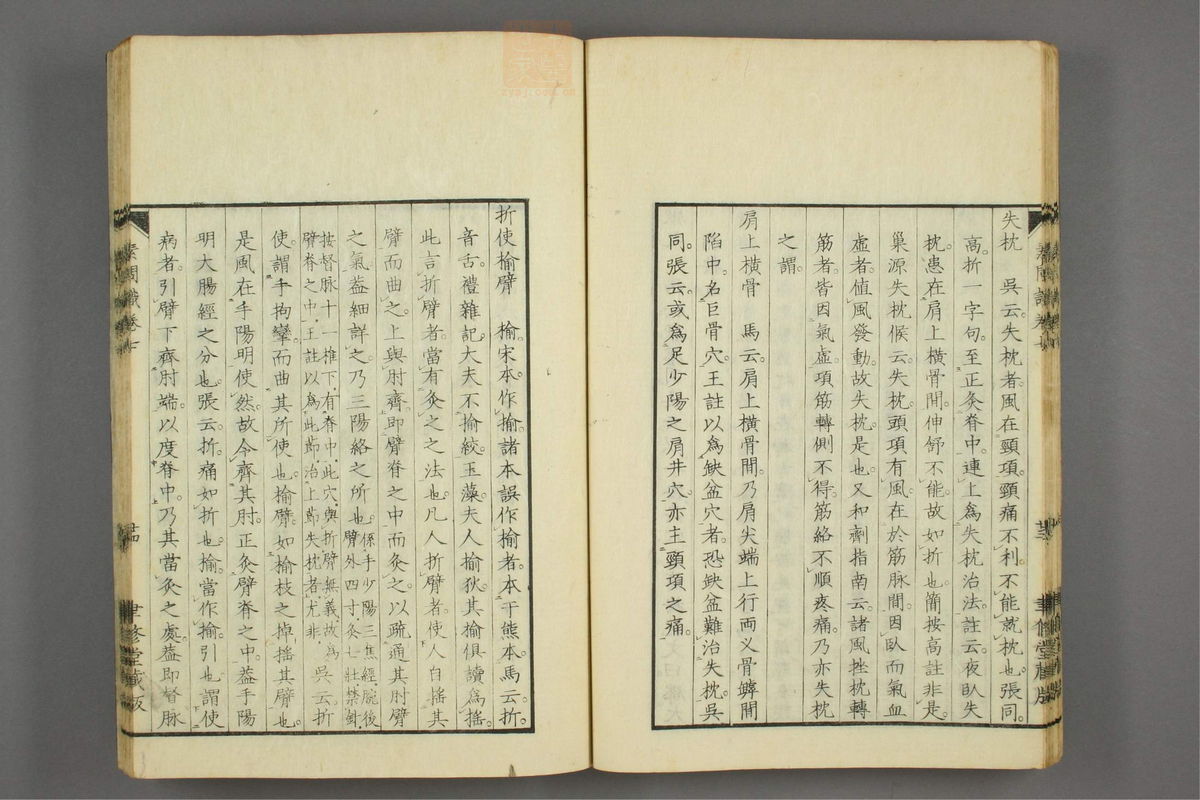 失枕　吳云。失枕者。風在頸項。頸痛不利。不能就枕也。張同。
高。折一字句。至正灸脊中。連上爲失枕治法。註云。夜臥失
枕。患在肩上橫骨間。伸舒不能。故如折也。簡按高註非是。
巢源失枕候云。失枕頭項有風。在於筋脉間。因臥而氣血
虛者。値風發動。故失枕是也。又和劑指南云。諸風挫枕轉
筋者。皆因氣虛。項筋轉側不得。筋絡不順疼痛。乃亦失枕
之謂。
肩上橫骨　馬云。肩上橫骨間。乃肩尖端上行兩叉骨罅間
陷中。名巨骨穴。王註以爲缺盆穴者。恐缺盆難治失枕。吳
同。張云。或爲足少陽之肩井穴。亦主頸項之痛。
素問識卷七
聿修堂藏版
折使榆臂　榆宋本作揄。諸本誤作榆者。本于熊本。馬云。折。
音舌。禮雜記。大夫不揄絞。玉藻。夫人揄狄。其揄俱讀爲搖。
此言折臂者。當有灸之之法也。凡人折臂者。使人自搖其
臂而曲之。上與肘齊。卽臂脊之中而灸之。以疏通其肘臂
之氣。葢細詳之。乃三陽絡之所也。係手少陽三焦經。腕後臂外四寸。灸七壯。禁鍼。
按督脉十一椎下。有脊中。此穴與折臂無義。故爲臂脊之中。王註以爲此節治上節失枕者。尤非。吳云。折
使。謂手拘攣。而曲其所使也。榆臂。如榆枝之掉。搖其臂也。
是風在手陽明使然。故令齊其肘。正灸臂脊之中。葢手陽
明大腸經之分也。張云。折。痛如折也。榆當作揄。引也。謂使
病者。引臂下齊肘端。以度脊中。乃其當灸之處。葢卽督脉
素問識卷七
聿修堂藏版